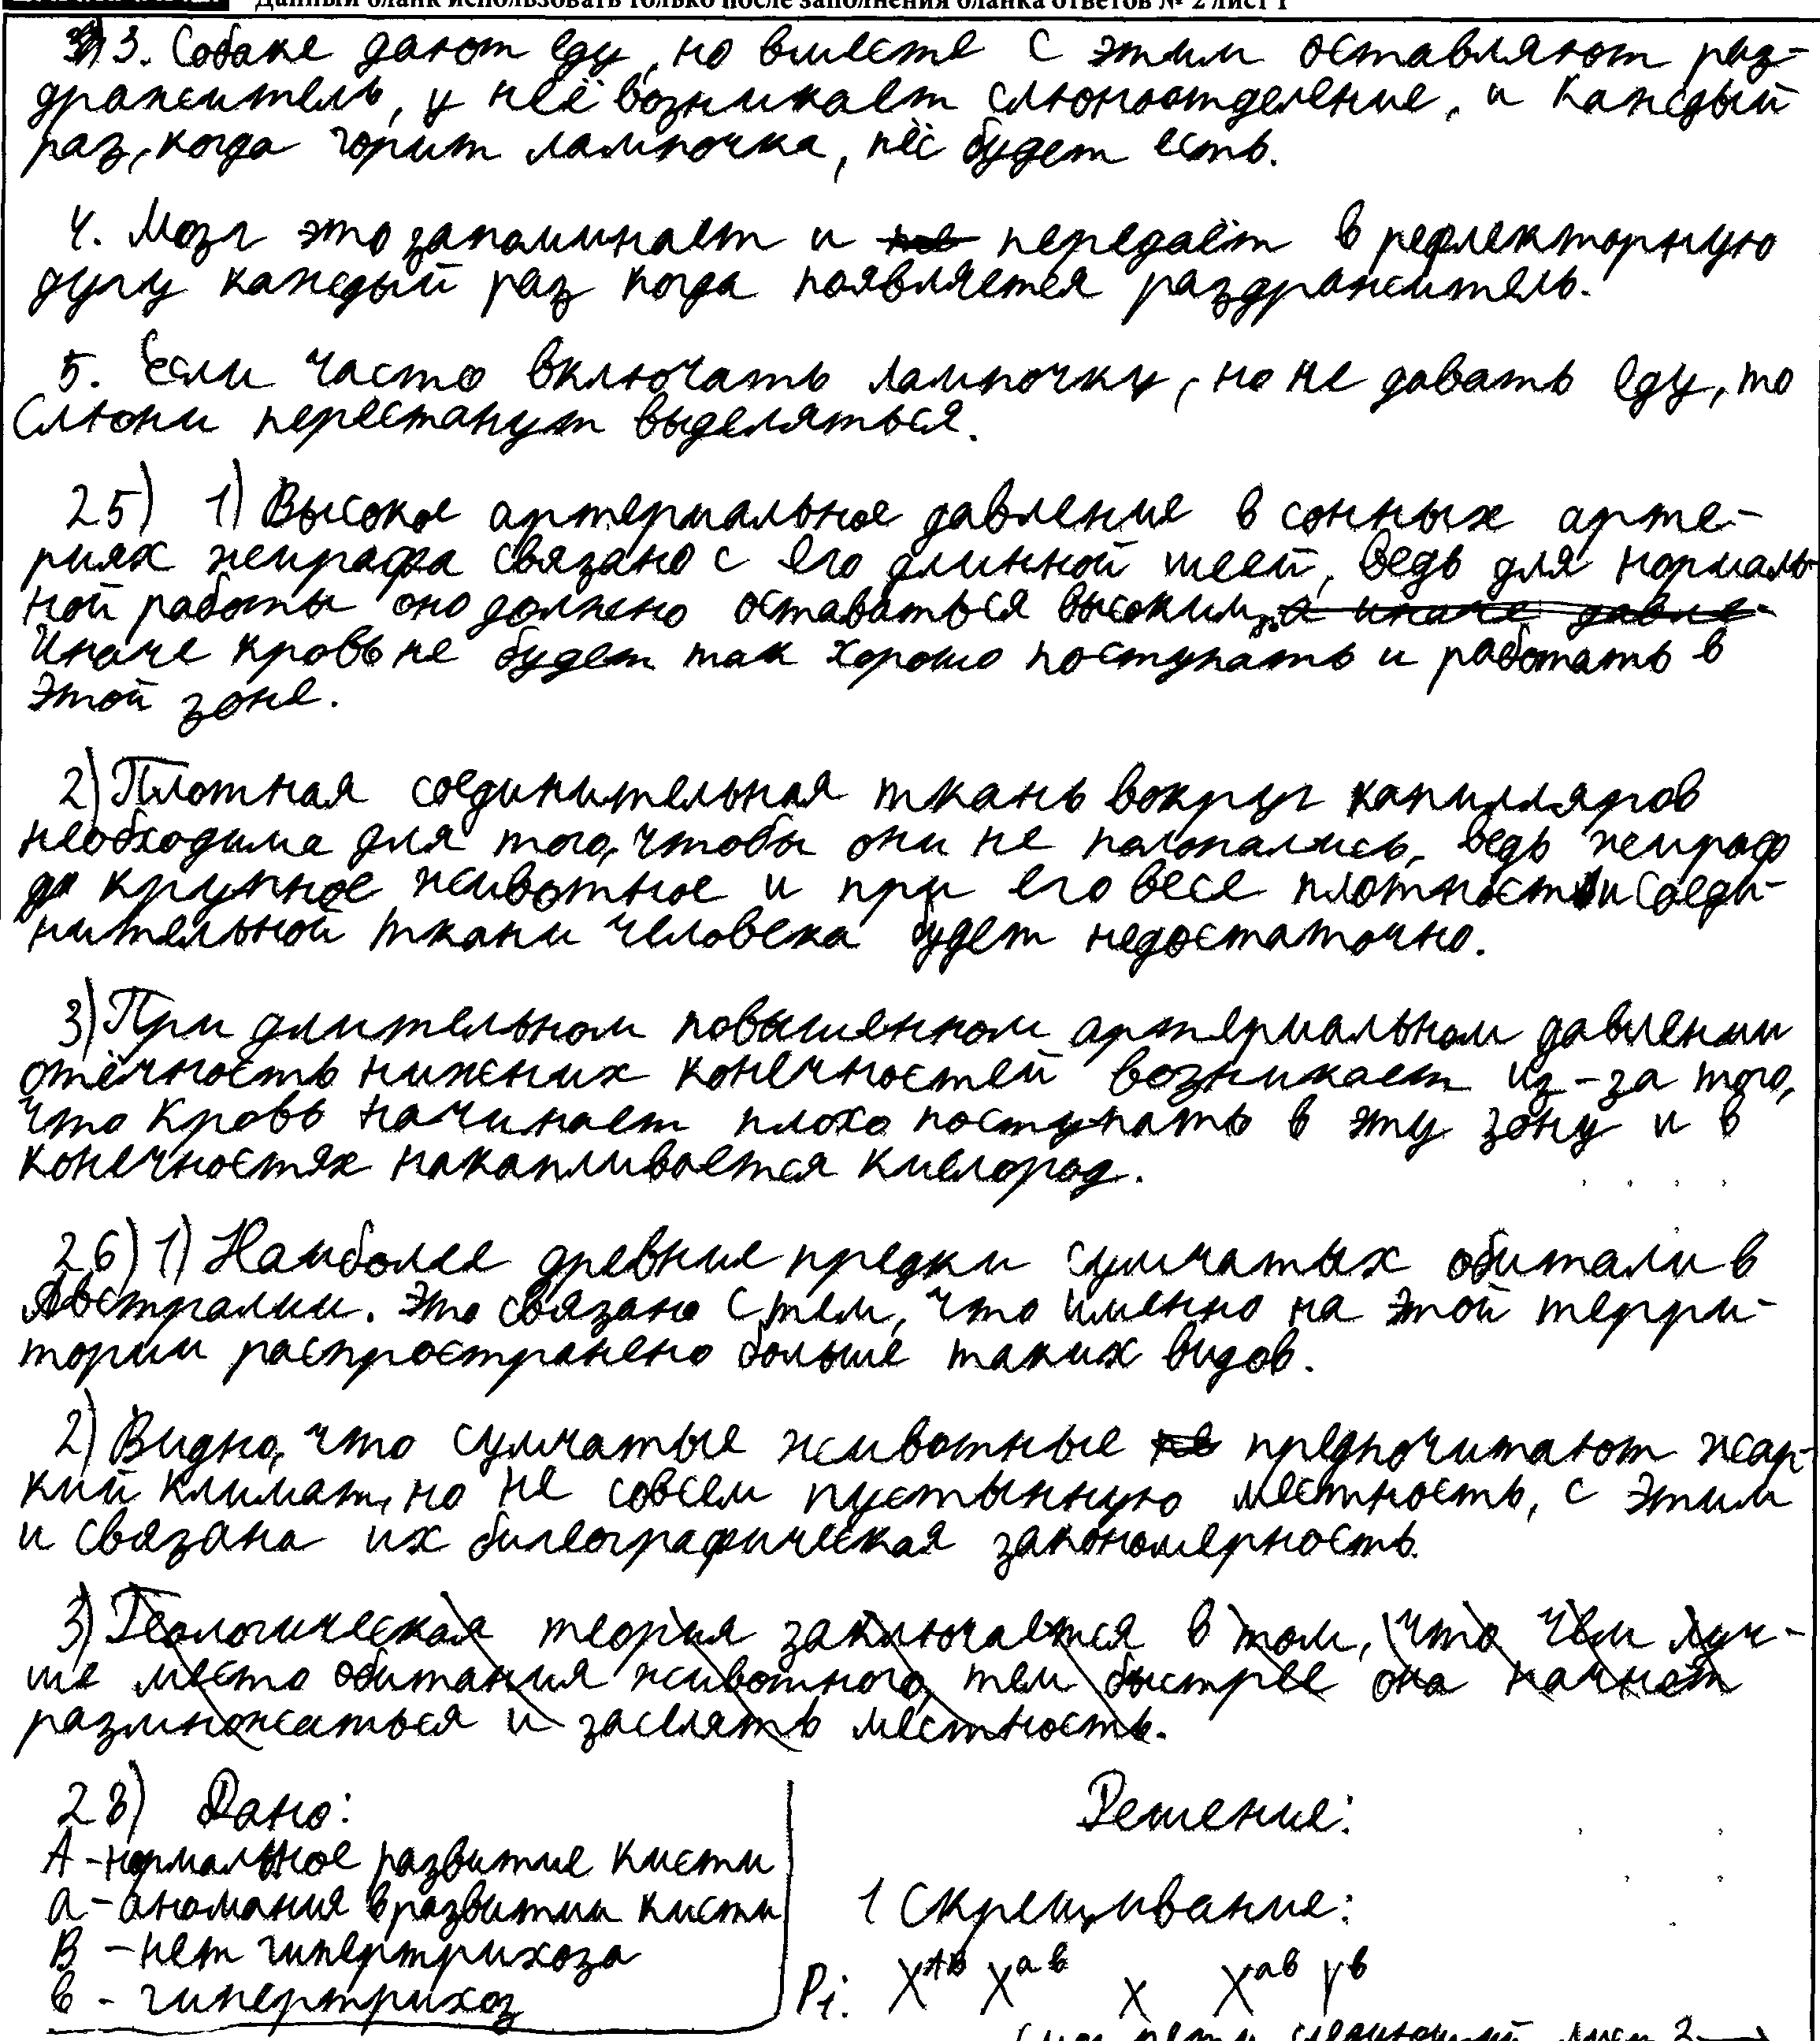 Данный бланк использовать только после заполнения бланка ответов № 2 лист 1
3. Собаке дают еду, но вместе с этим оставляют раз-
дражитель, у неё возникает слюноотделение, и каждый
раз, когда горит лампочка, пёс будет есть.
4. Мозг это запоминает и не передаёт в рефлекторную
дугу каждый раз когда появляется раздражитель.
5. Если часто включать лампочку, но не давать еду, то
слюни перестанут выделяться.
25) 1) Высокое артериальное давление в сонных арте-
риях жирафа связано с его длинной шеей, ведь для нормаль-
ной работы оно должно оставаться высоким, а иначе давле-
Иначе кровь не будет так хорошо поступать и работать в
этой зоне.
2) Плотная соединительная ткань вокруг капилляров
необходима для того, чтобы они не полопались, ведь жираф
крупное животное и при его весе плотности соеди-
нительной ткани человека будет недостаточно.
3) При длительном повышенном артериальном давлении
отёчность нижних конечностей возникает из-за того,
что кровь начинает плохо поступать в эту зону и в
конечностях накапливается кислород.
26) 1) Наиболее древние предки сумчатых обитали в
Австралии. Это связано с тем, что именно на этой терри-
тории распространено больше таких видов.
2) Видно, что сумчатые животные не предпочитают жар-
кий климат, но не совсем пустынную местность, с этим
и связана их биогеографическая закономерность.
3) Геологическая теория заключается в том, что чем луч-
ше место обитания животного, тем быстрее она начнет
размножаться и заселять местность.
28) Дано: Решение:
А - нормальное развитие кисти
а - аномалия в развитии кисти 1 Скрещивание:
В - нет гипертрихоза
в - гипертрихоз P1: X^АВ X^ав x X^ав Y^в
следующий лист 2 →